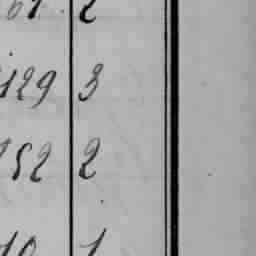 61 2
129 3
152 2
10 1